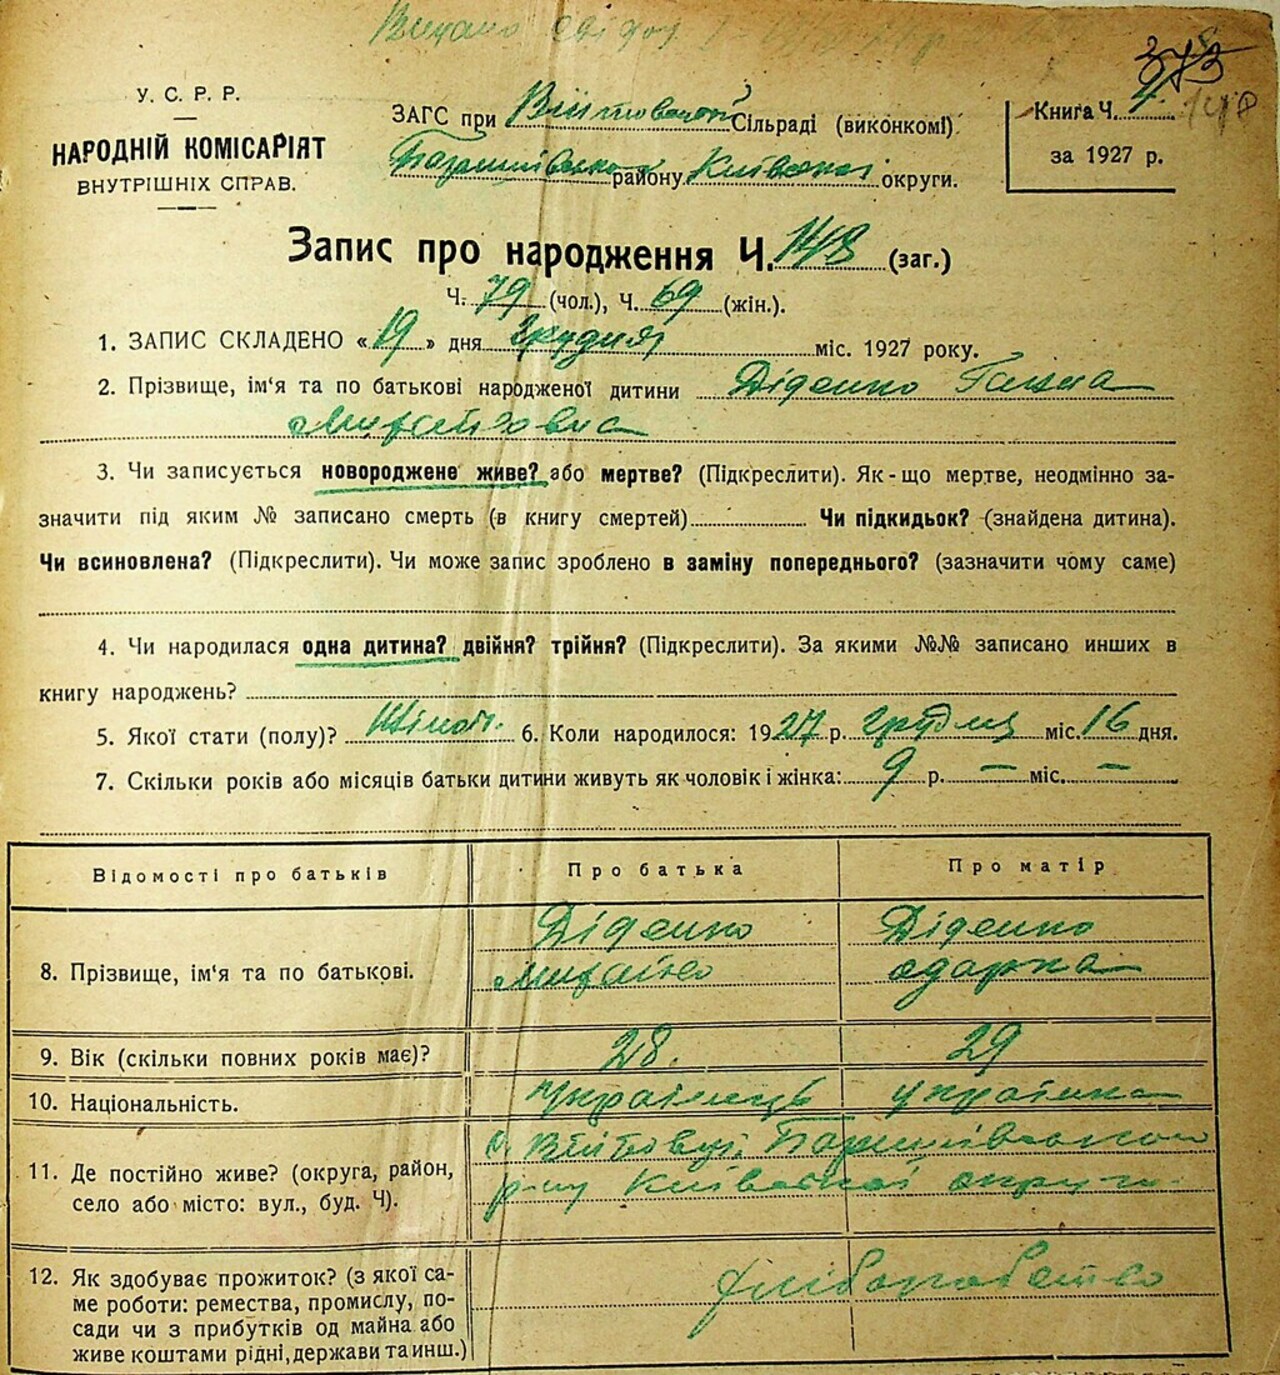 Видано
373
У. С. Р. Р.
НАРОДНІЙ КОМІСАРІЯТ
ВНУТРІШНІХ СПРАВ.
ЗАГС при Війтовській Сільраді (виконкомі).
Баришівського району Київської округи.
Книга Ч. 148
за 1927 р.
Запис про народження Ч. 148 (заг.)
Ч. 79 (чол.), Ч. 69 (жін.).
1. ЗАПИС СКЛАДЕНО «19» дня грудня міс. 1927 року.
2. Прізвище, ім'я та по батькові народженої дитини Діденко Ганна
Михайловна
3. Чи записується новороджене живе? або мертве? (Підкреслити). Як-що мертве, неодмінно за-
значити під яким № записано смерть (в книгу смертей) Чи підкидьок? (знайдена дитина).
Чи всиновлена? (Підкреслити). Чи може запис зроблено в заміну попереднього? (зазначити чому саме)
4. Чи народилася одна дитина? двійня? трійня? (Підкреслити). За якими №№ записано инших в
книгу народжень?
5. Якої стати (полу)? Жіноч. 6. Коли народилося: 1927 р. грудня міс. 16 дня.
7. Скільки років або місяців батьки дитини живуть як чоловік і жінка: 9 р. — міс. —
Відомості про батьків Про батька Про матір
8. Прізвище, ім'я та по батькові. Діденко Михайло Діденко Одарка
9. Вік (скільки повних років має)? 28. 29
10. Національність. Українець Українка
11. Де постійно живе? (округа, район,
село або місто: вул., буд. Ч).
с. Війтовці, Баришівського
р-ну Київської округи
12. Як здобуває прожиток? (з якої са-
ме роботи: ремества, промислу, по-
сади чи з прибутків од майна або
живе коштами рідні, держави та инш.)
хліборобство